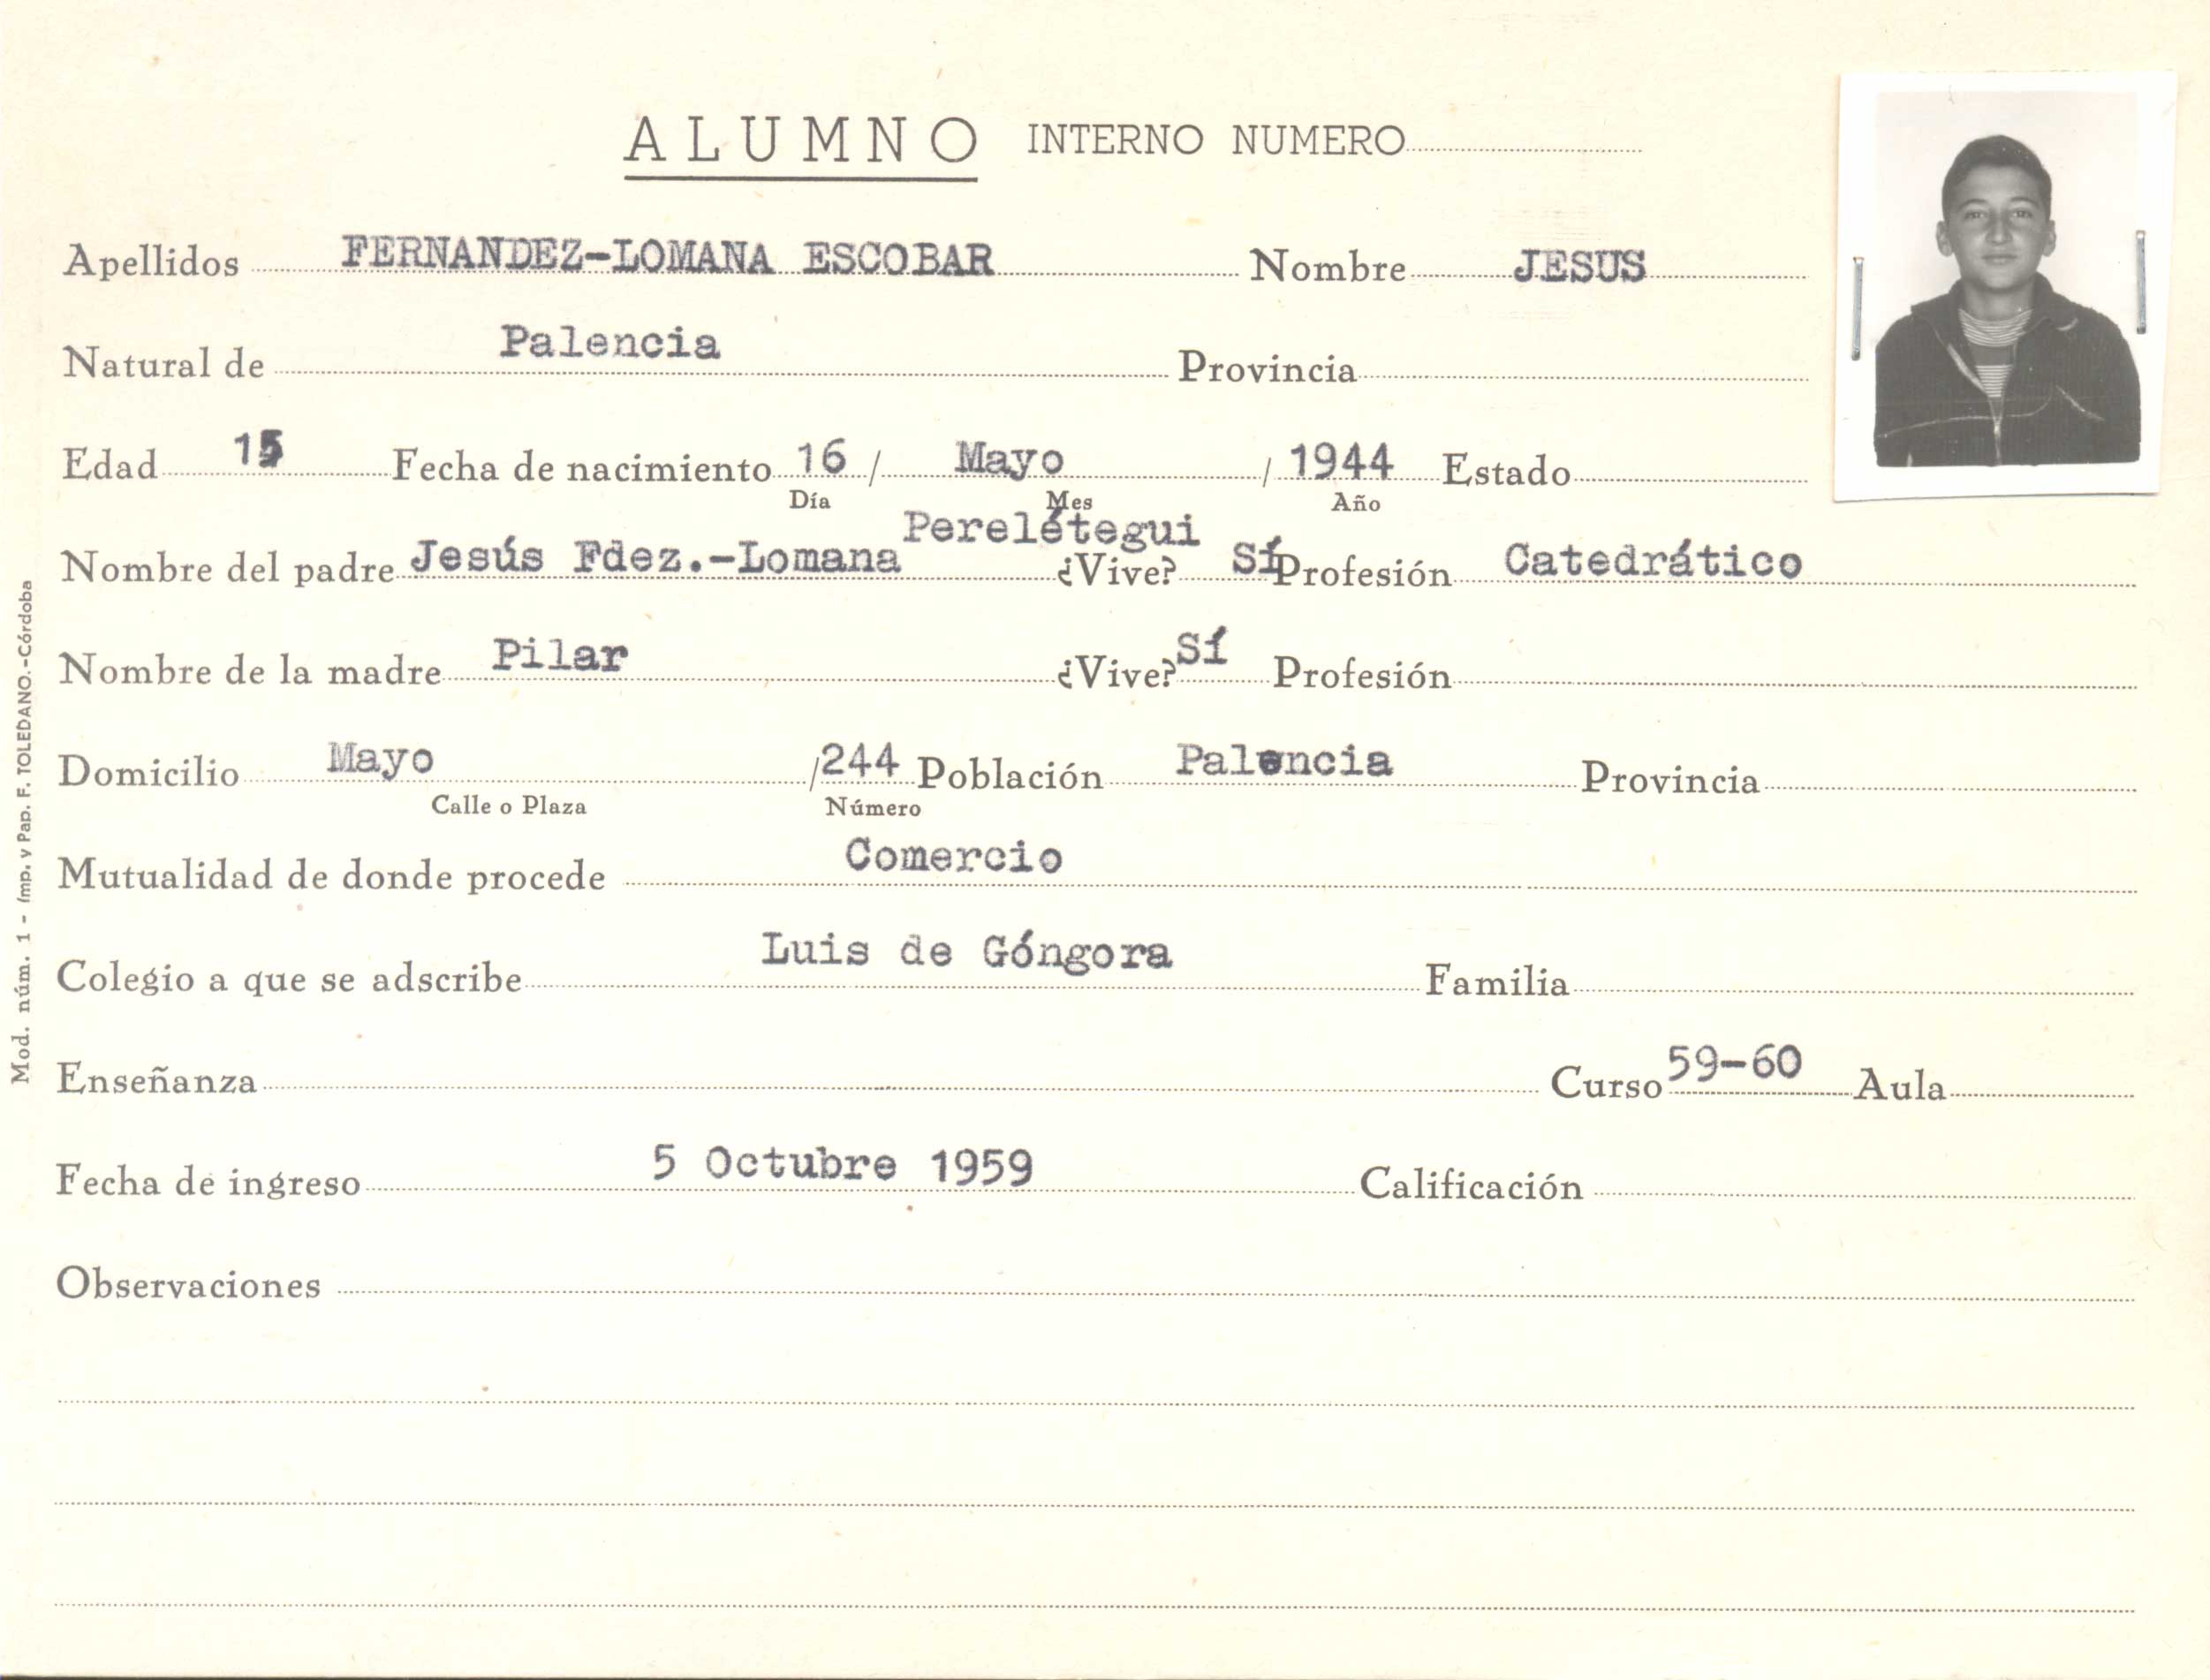 ALUMNO INTERNO NUMERO
Apellidos FERNANDEZ-LOMANA ESCOBAR Nombre JESUS
Natural de Palencia Provincia
Edad 15 Fecha de nacimiento 16 / Mayo / 1944 Estado
Día Mes Año
Perelétegui
Nombre del padre Jesús Fdez.-Lomana ¿Vive? Sí Profesión Catedrático
Nombre de la madre Pilar ¿Vive? Sí Profesión
Domicilio Mayo /244 Población Palencia Provincia
Calle o Plaza Número
Mutualidad de donde procede Comercio
Colegio a que se adscribe Luis de Góngora Familia
Enseñanza Curso 59-60 Aula
Fecha de ingreso 5 Octubre 1959 Calificación
Observaciones
Mod. núm. 1 - Imp. y Pap. F. TOLEDANO.-Córdoba